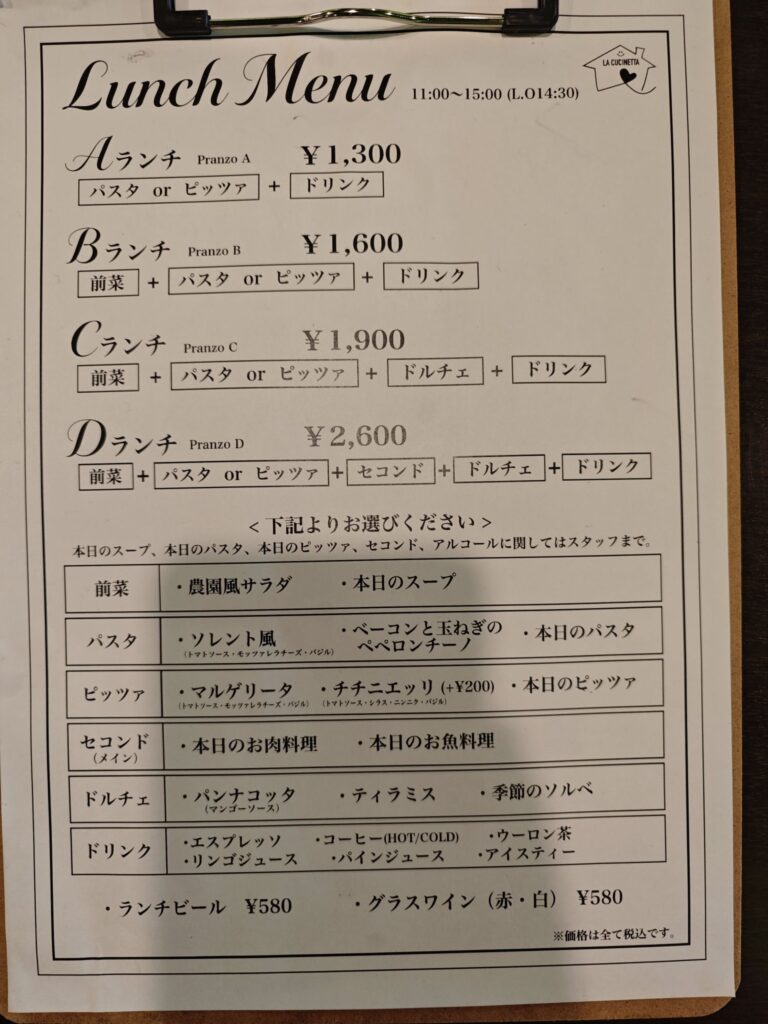 LA CUCINETTA
Lunch Menu 11:00〜15:00 (L.O14:30)
Aランチ Pranzo A ￥1,300
パスタ or ピッツァ + ドリンク
Bランチ Pranzo B ￥1,600
前菜 + パスタ or ピッツァ + ドリンク
Cランチ Pranzo C ￥1,900
前菜 + パスタ or ピッツァ + ドルチェ + ドリンク
Dランチ Pranzo D ￥2,600
前菜 + パスタ or ピッツァ + セコンド + ドルチェ + ドリンク
< 下記よりお選びください >
本日のスープ、本日のパスタ、本日のピッツァ、セコンド、アルコールに関してはスタッフまで。
前菜 ・農園風サラダ ・本日のスープ
パスタ ・ソレント風 ・ベーコンと玉ねぎの ・本日のパスタ
(トマトソース・モッツァレラチーズ・バジル) ペペロンチーノ
ピッツァ ・マルゲリータ ・チチニエッリ (+¥200) ・本日のピッツァ
(トマトソース・モッツァレラチーズ・バジル) (トマトソース・シラス・ニンニク・バジル)
セコンド ・本日のお肉料理 ・本日のお魚料理
(メイン)
ドルチェ ・パンナコッタ ・ティラミス ・季節のソルベ
(マンゴーソース)
ドリンク ・エスプレッソ ・コーヒー(HOT/COLD) ・ウーロン茶
・リンゴジュース ・パインジュース ・アイスティー
・ランチビール ¥580 ・グラスワイン（赤・白） ¥580
※価格は全て税込です。